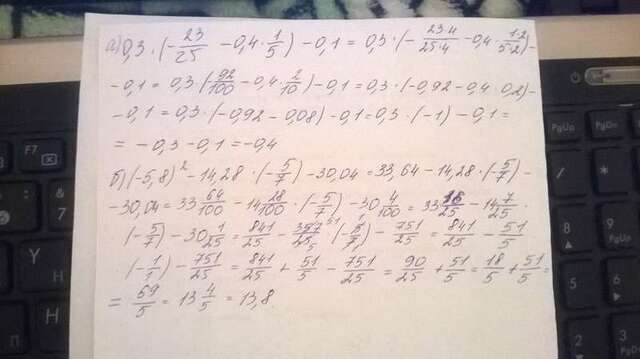 а) 0,3 · (-23/25 - 0,4 · 1/5) - 0,1 = 0,3 · (-23·4/25·4 - 0,4 · 1·2/5·2) -
- 0,1 = 0,3 · (92/100 - 0,4 · 2/10) - 0,1 = 0,3 · (-0,92 - 0,4 · 0,2) -
- 0,1 = 0,3 · (-0,92 - 0,08) - 0,1 = 0,3 · (-1) - 0,1 =
= - 0,3 - 0,1 = -0,4
б) (-5,8)² - 14,28 · (-5/7) - 30,04 = 33,64 - 14,28 · (-5/7) -
- 30,04 = 33 64/100 - 14 28/100 · (-5/7) - 30 4/100 = 33 16/25 - 14 7/25 ·
· (-5/7) - 30 1/25 = 841/25 - 357/25 · (-5/7) - 751/25 = 841/25 - 51/5
(-1/1) - 751/25 = 841/25 + 51/5 - 751/25 = 90/25 + 51/5 = 18/5 + 51/5 =
= 69/5 = 13 4/5 = 13,8
F7
F8
PgUp
PgDn
PgUp
8
9
5
6
2
3
PgDn